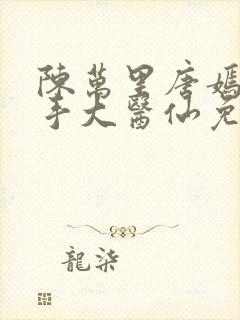 陳萬里唐嫣
手大醫仙免
龍柒